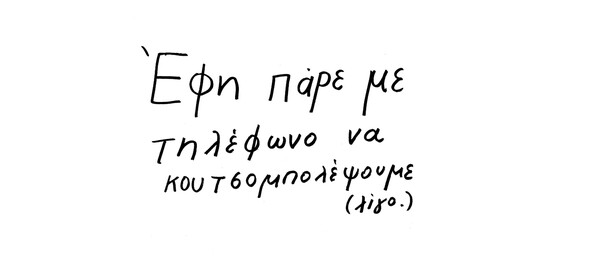 Έφη πάρε με
τηλέφωνο να
κουτσομπολέψουμε
(λίγο.)